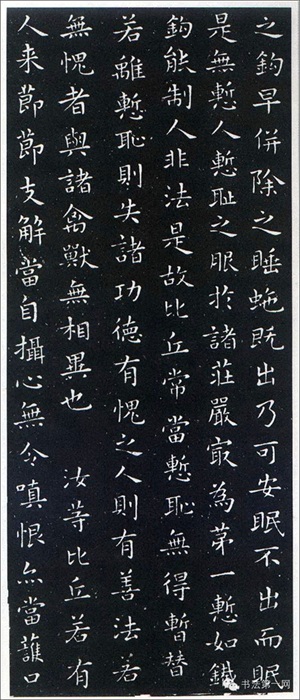 之鈎早併除之睡虵既出乃可安眠不出而眠
是無慙人慙耻之服於諸莊嚴㝡為苐一慙如鐵
鈎能制人非法是故比丘常當慙恥無得暫替
若離慙恥則失諸功德有愧之人則有善法若
無愧者與諸禽獸無相異也　汝等比丘若有
人来節節支解當自攝心無令嗔恨亦當護口
书法第一网